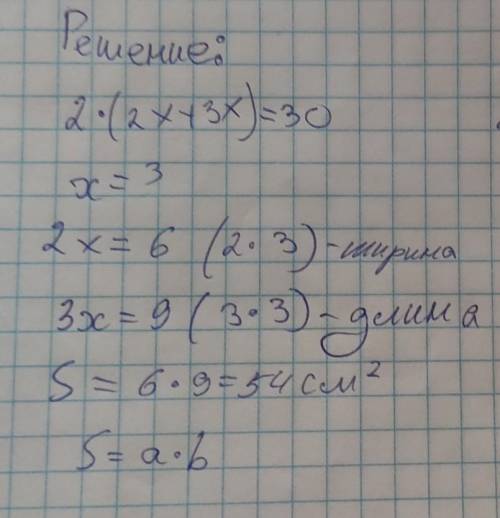 Решение:
2·(2x+3x)=30
x=3
2x=6 (2·3)-ширина
3x=9 (3·3)-длина
S=6·9=54см²
S=a·b